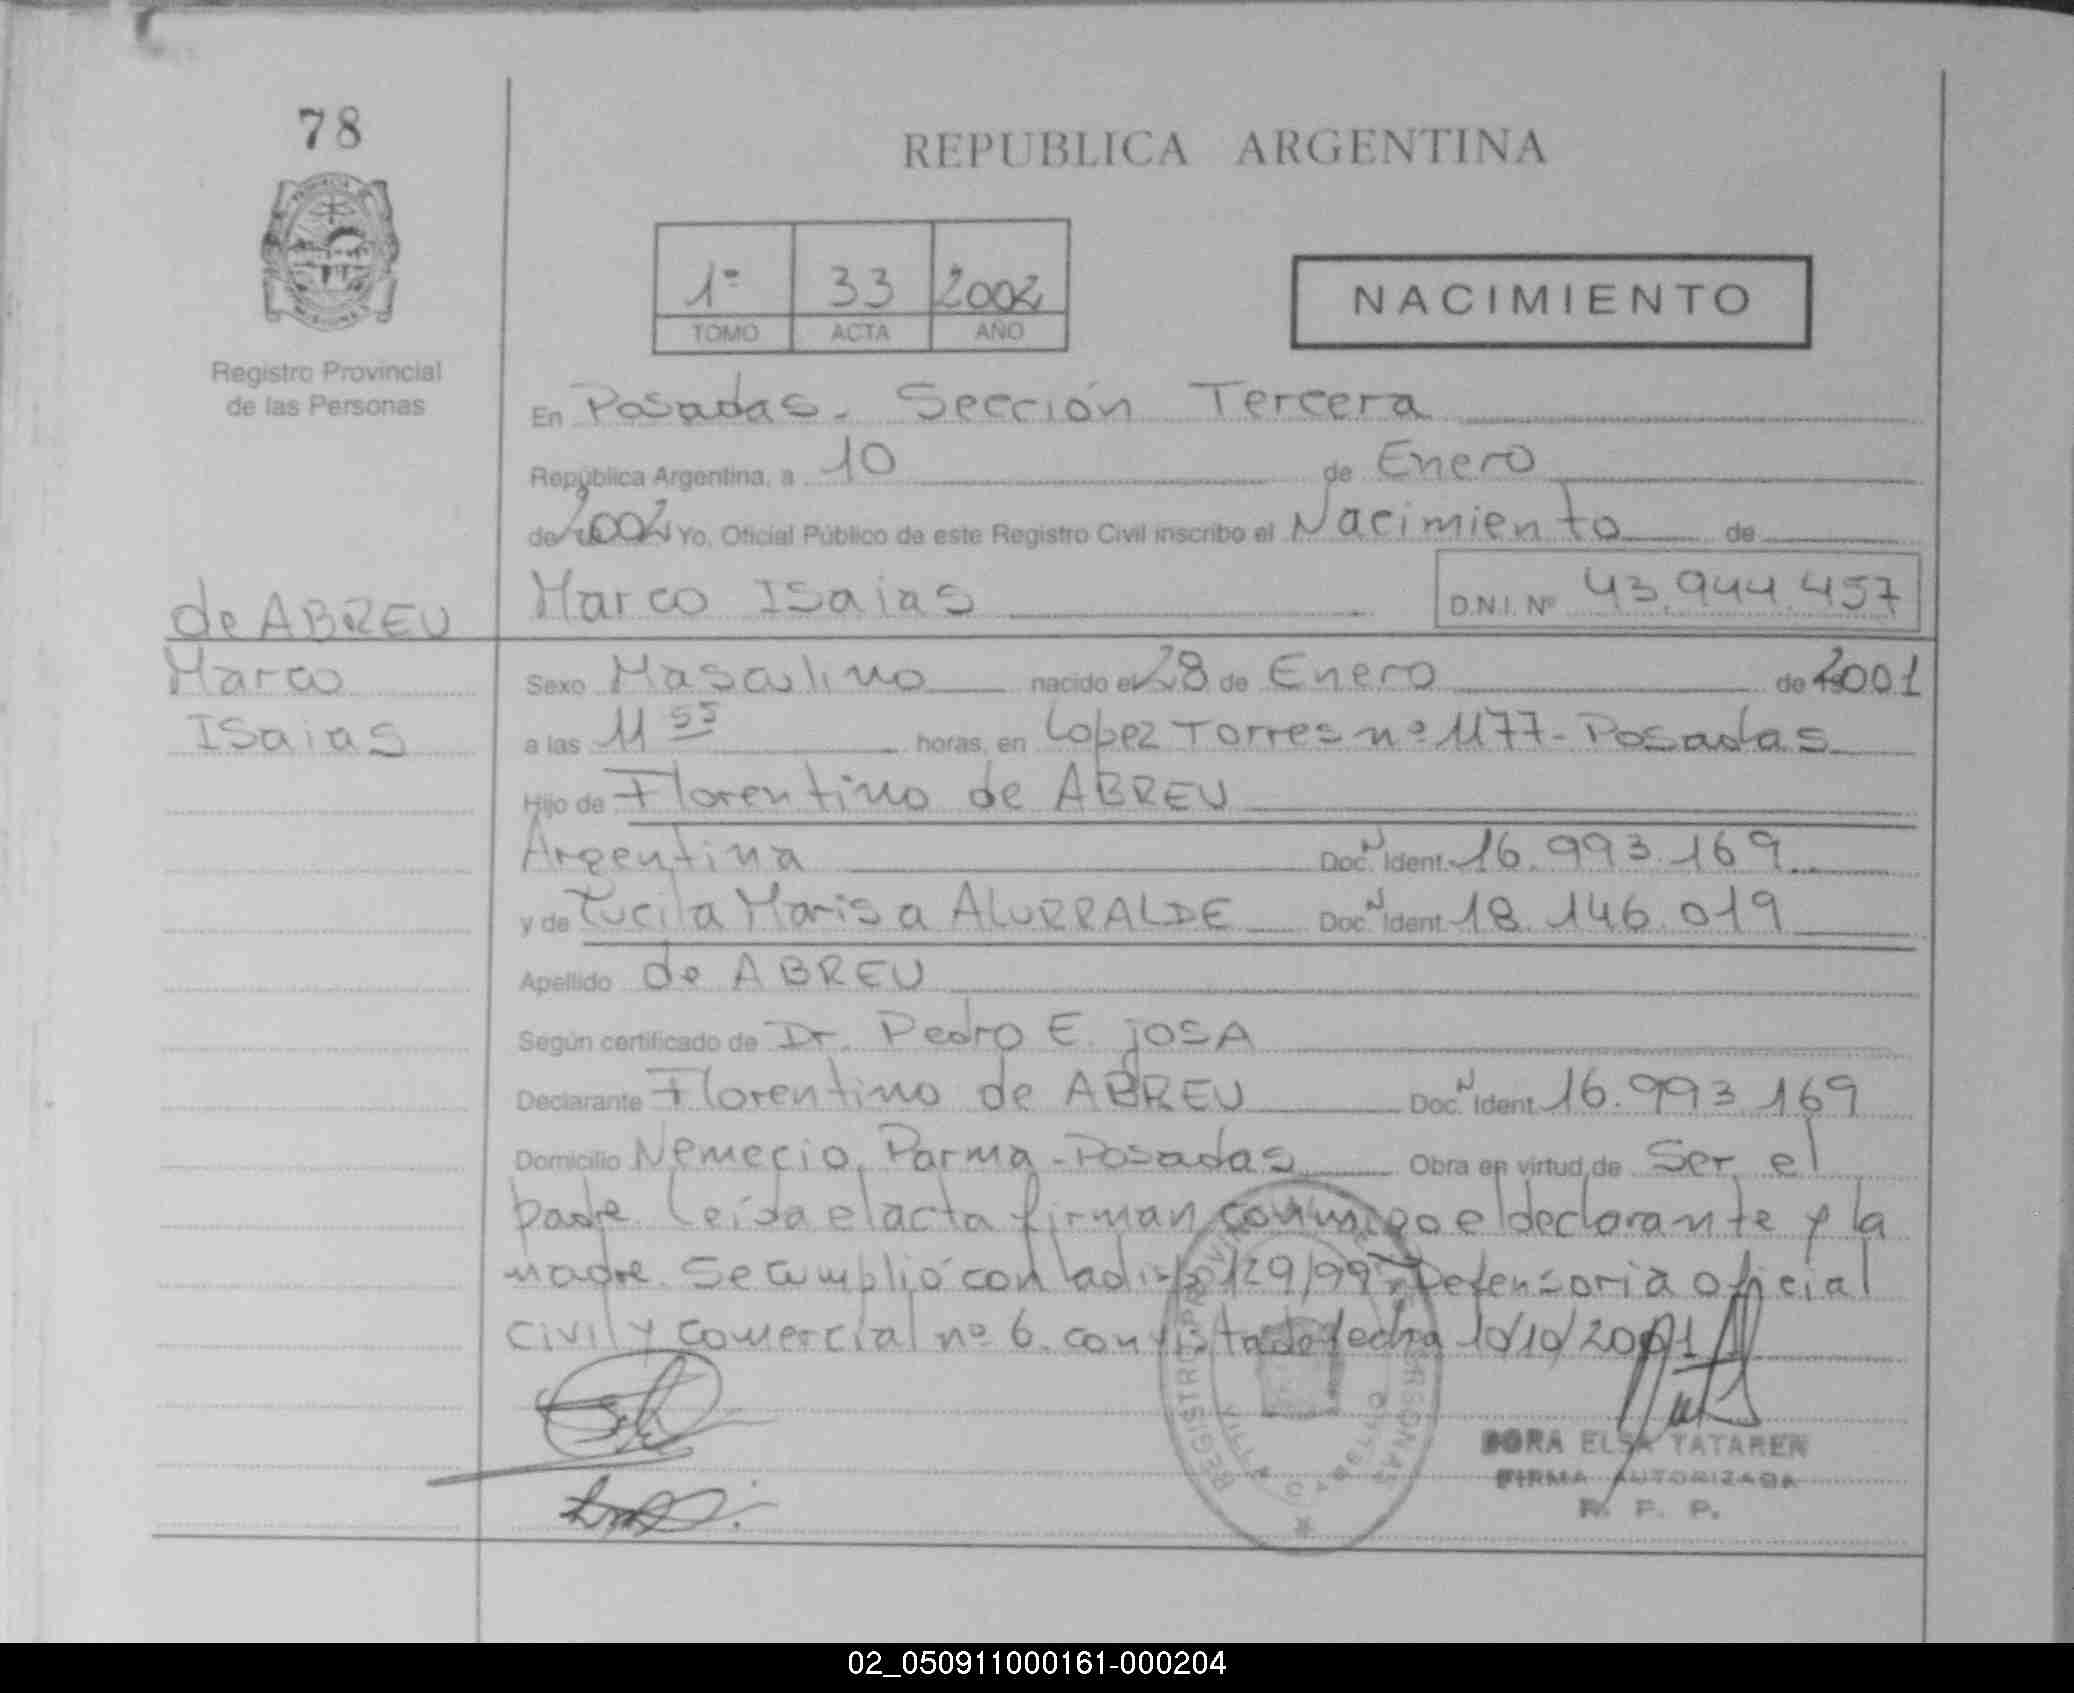 78
REPUBLICA ARGENTINA
1º 33 2002
TOMO ACTA AÑO
NACIMIENTO
Registro Provincial
de las Personas
En Posadas - Sección Tercera
República Argentina, a 10 de Enero
de 2002 Yo, Oficial Público de este Registro Civil inscribo el Nacimiento de
Marco Isaias D.N.I. Nº 43.944.457
de ABREU
Marco
Isaias
Sexo Masculino nacido el 28 de Enero de 2001
a las 11 55 horas, en Lopez Torres nº 1177 - Posadas
Hijo de Florentino de ABREU
Argentina Doc. N Ident. 16.993.169
y de Lucila Marisa ALURRALDE Doc. N Ident. 18.146.019
Apellido de ABREU
Según certificado de Dr. Pedro E. JOSA
Declarante Florentino de ABREU Doc. N Ident. 16.993.169
Domicilio Nemecio Parma - Posadas Obra en virtud de Ser el
padre. Leída el acta firman conmigo el declarante y la
madre. Se cumplió con la disp. 129/99 Defensoria oficial
civil y comercial nº 6. con vista de fecha 10/10/2001
REGISTRO PROVINCIAL DE LAS PERSONAS
VILLA CABELLO
DORA ELSA TATAREN
FIRMA AUTORIZADA
R. P. P.
02_050911000161-000204